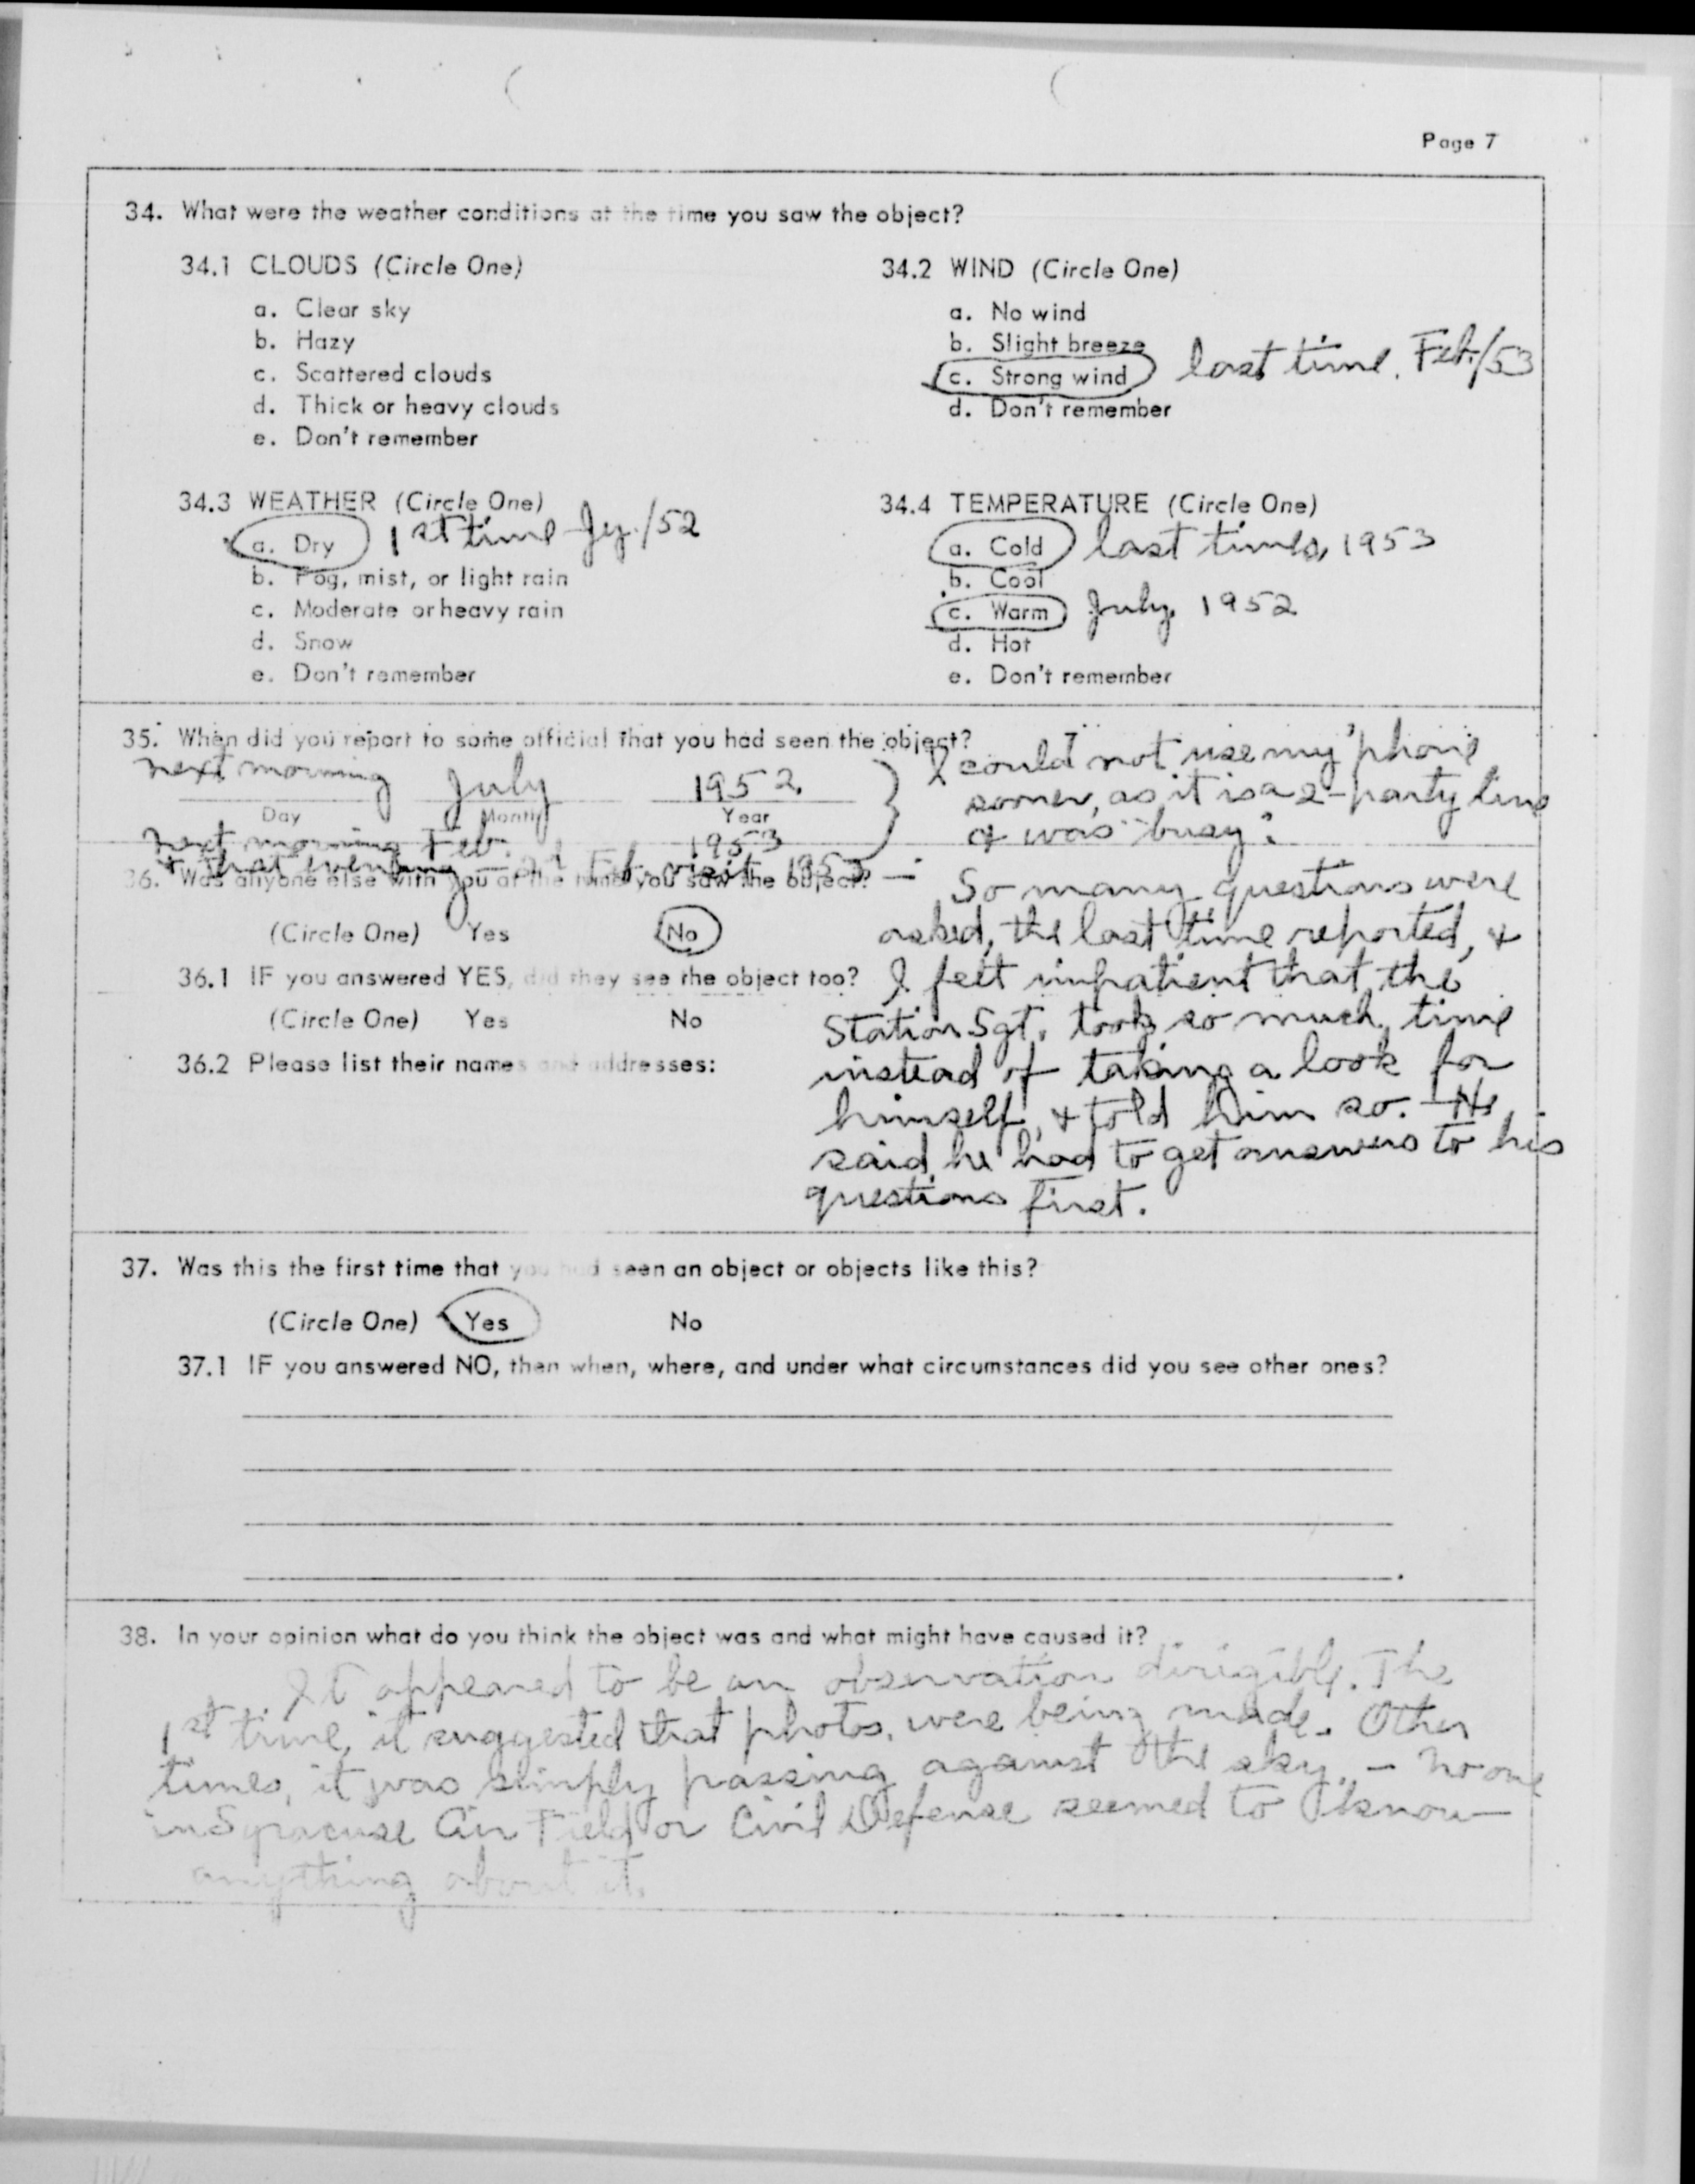 Page 7
34. What were the weather conditions at the time you saw the object?
34.1 CLOUDS (Circle One)
a. Clear sky
b. Hazy
c. Scattered clouds
d. Thick or heavy clouds
e. Don't remember
34.2 WIND (Circle One)
a. No wind
b. Slight breeze
c. Strong wind last time. Feb./53
d. Don't remember
34.3 WEATHER (Circle One)
a. Dry 1st time Jy./52
b. Fog, mist, or light rain
c. Moderate or heavy rain
d. Snow
e. Don't remember
34.4 TEMPERATURE (Circle One)
a. Cold last times, 1953
b. Cool
c. Warm July 1952
d. Hot
e. Don't remember
35. When did you report to some official that you had seen the object?
next morning July 1952
Day Month Year
next morning Feb. 1953
& that evening Feb. visit 1953 —
I could not use my 'phone
sooner, as it is a 2-party line
& was "busy".
36. Was anyone else with you at the time you saw the object?
(Circle One) Yes No
36.1 IF you answered YES, did they see the object too?
(Circle One) Yes No
36.2 Please list their names and addresses:
So many questions were
asked, the last time reported, &
I felt impatient that the
Station Sgt. took so much time
instead of taking a look for
himself, & told him so. He
said he had to get answers to his
questions first.
37. Was this the first time that you had seen an object or objects like this?
(Circle One) Yes No
37.1 IF you answered NO, then when, where, and under what circumstances did you see other ones?
38. In your opinion what do you think the object was and what might have caused it?
It appeared to be an observation dirigible. The
1st time, it suggested that photos, were being made. Other
times, it was simply passing against the sky. — No one
in Syracuse Air Field or Civil Defense seemed to know
anything about it.